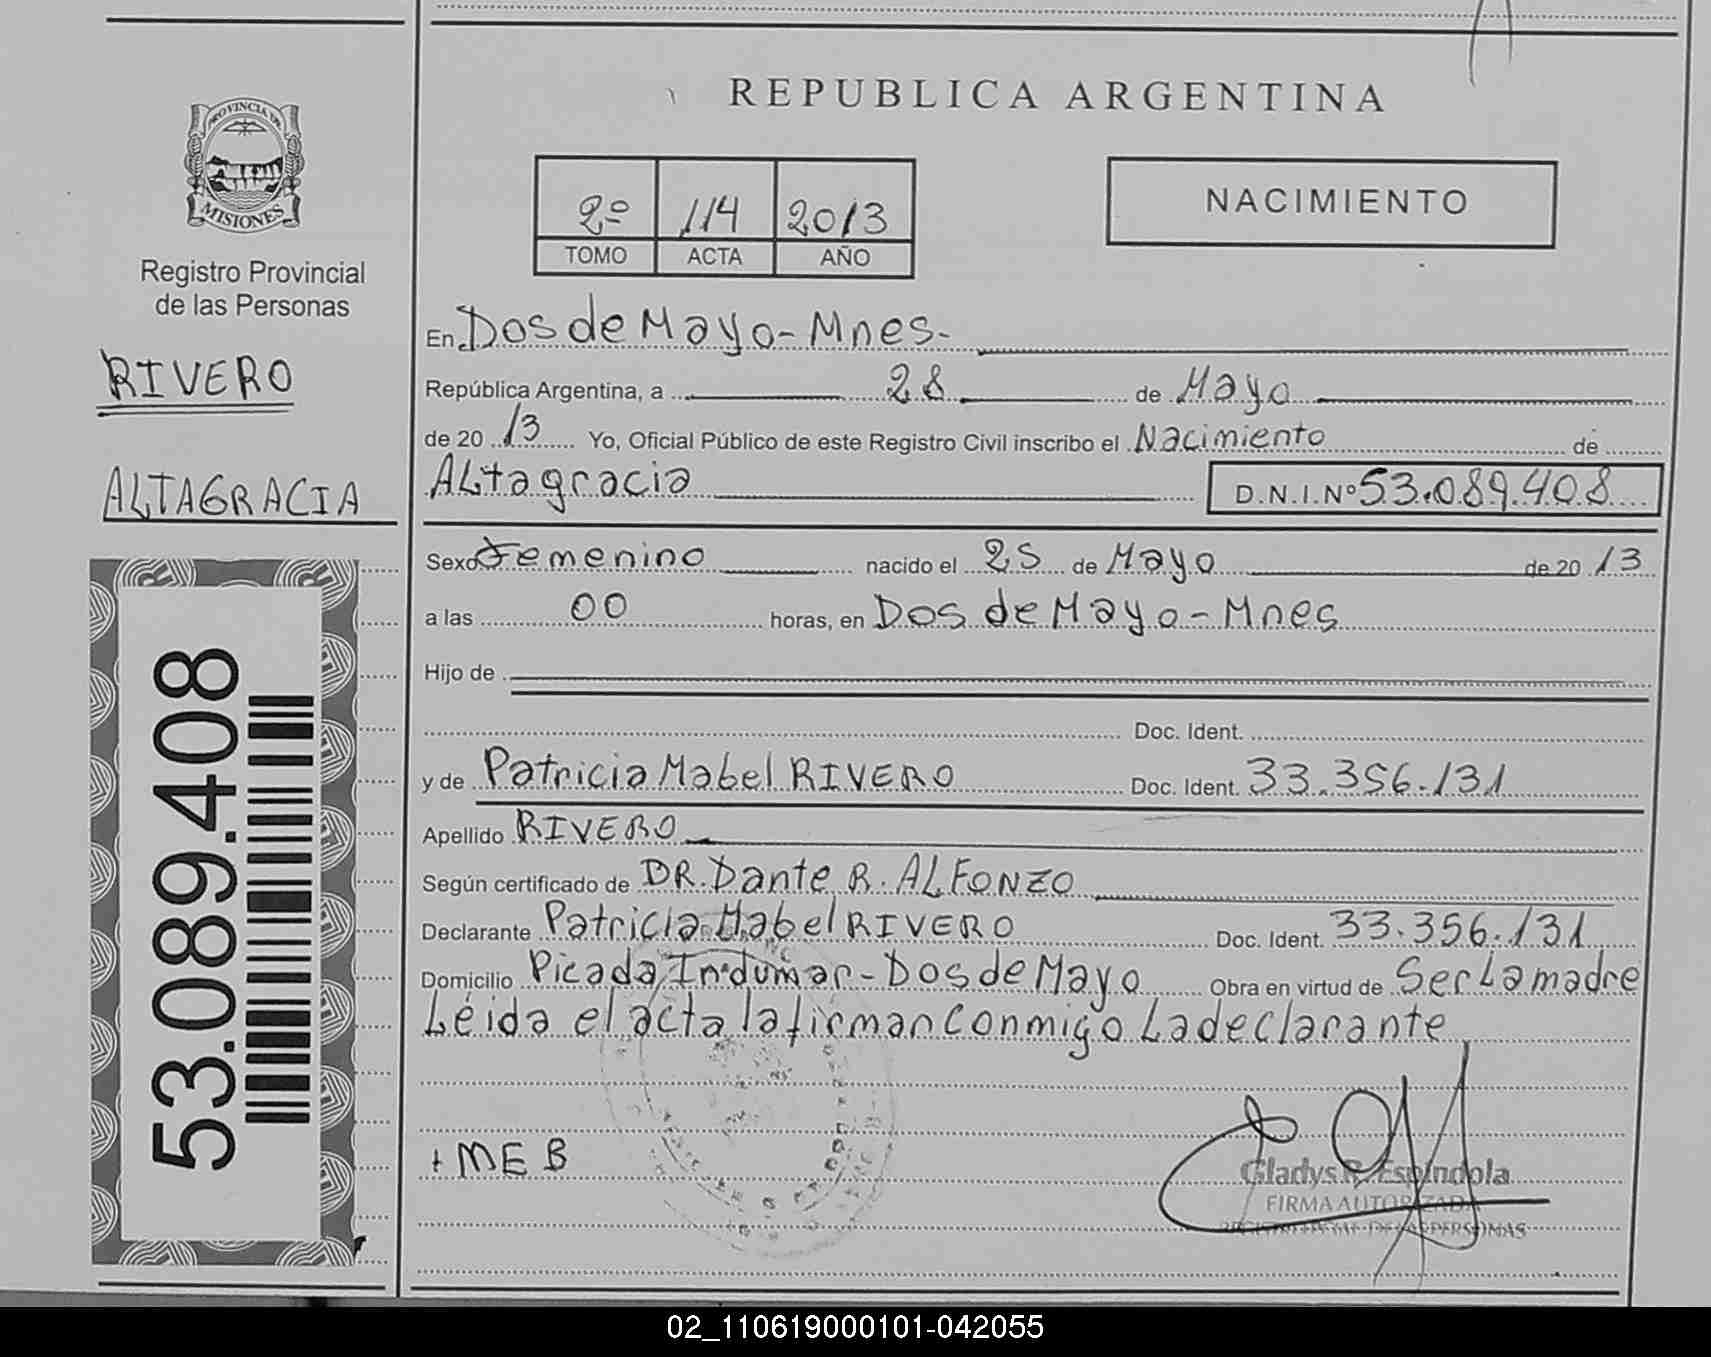 REPUBLICA ARGENTINA
PROVINCIA DE
MISIONES
Registro Provincial
de las Personas
RIVERO
ALTAGRACIA
53.089.408
2º 114 2013
TOMO ACTA AÑO
NACIMIENTO
En Dos de Mayo - Mnes.
República Argentina, a 28 de Mayo
de 20 13 Yo, Oficial Público de este Registro Civil inscribo el Nacimiento de
Altagracia D.N.I.Nº 53.089.408
Sexo Femenino nacido el 25 de Mayo de 20 13
a las 00 horas, en Dos de Mayo - Mnes
Hijo de
Doc. Ident.
y de Patricia Mabel RIVERO Doc. Ident. 33.356.131
Apellido RIVERO
Según certificado de DR. Dante R. ALFONZO
Declarante Patricia Mabel RIVERO Doc. Ident. 33.356.131
Domicilio Picada Indumar - Dos de Mayo Obra en virtud de Ser La madre
Léida el acta la firman conmigo La declarante
+ MEB
Gladys R. Espindola
FIRMA AUTORIZADA
PERSONAS
02_110619000101-042055